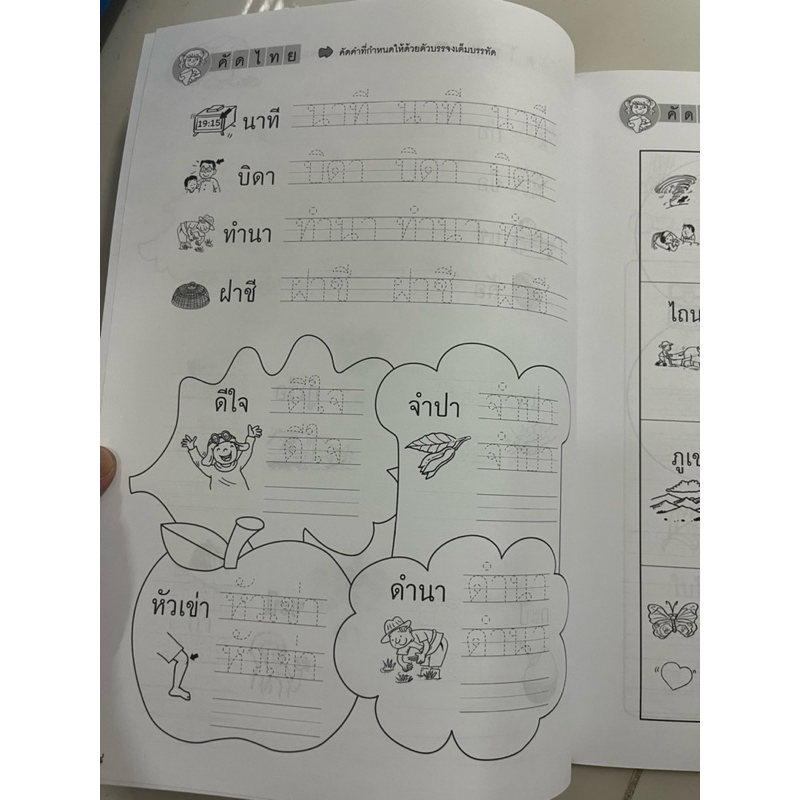 คัดไทย
คัดคำที่กำหนดให้ด้วยตัวบรรจงเต็มบรรทัด
19:15 นาที นาที นาที นาที
บิดา บิดา บิดา บิดา
ทำนา ทำนา ทำนา ทำนา
ฝาชี ฝาชี ฝาชี ฝาชี
ดีใจ ดีใจ
ดีใจ
จำปา จำปา
จำปา
หัวเข่า หัวเข่า
หัวเข่า
ดำนา ดำนา
ดำนา
คัด